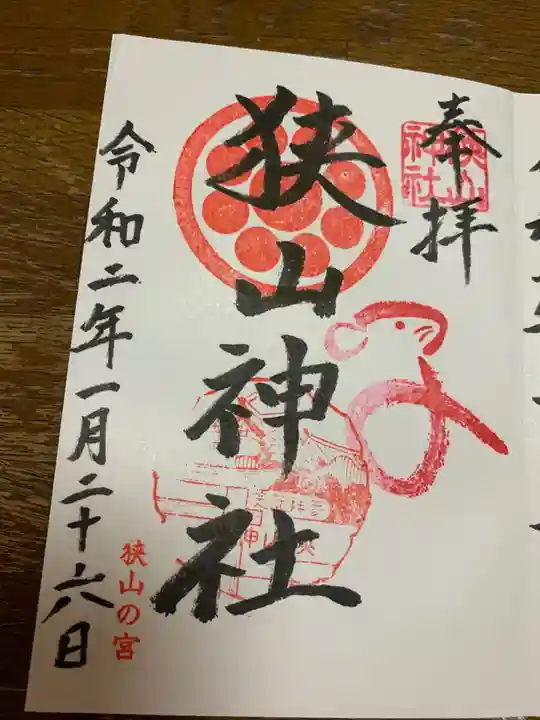 奉拝
狭山神社
狭山神社
令和二年一月二十六日
狭山の宮